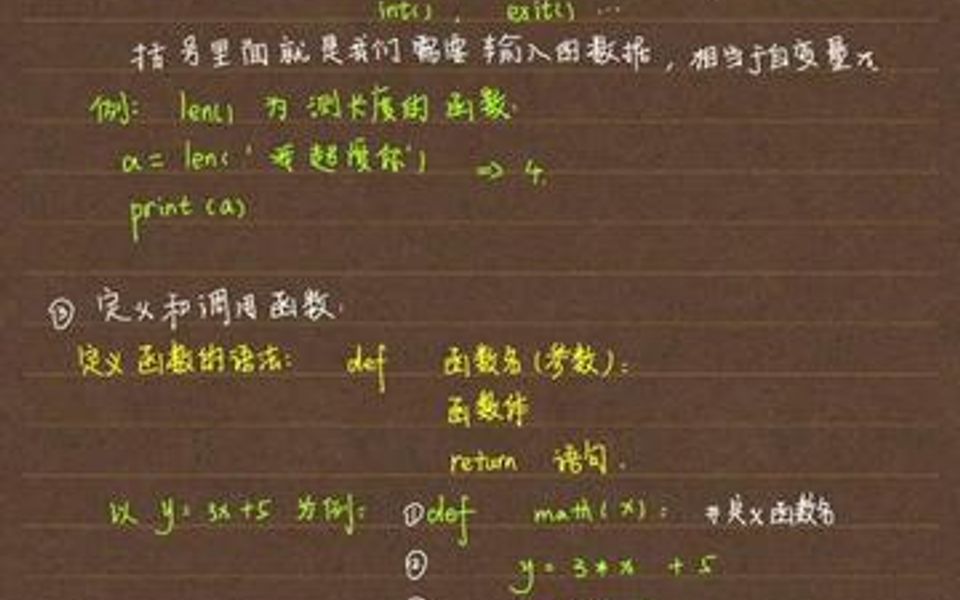 int()， exit() …
括号里面就是我们需要输入的数据，相当于自变量x
例： len() 为 测长度的 函数.
a = len('我超爱你') => 4.
print (a)
③ 定义和调用函数.
定义 函数的语法： def 函数名(参数)：
函数体
return 语句.
以 y = 3x+5 为例： ①def math(x)： #定义函数名
② y = 3*x + 5